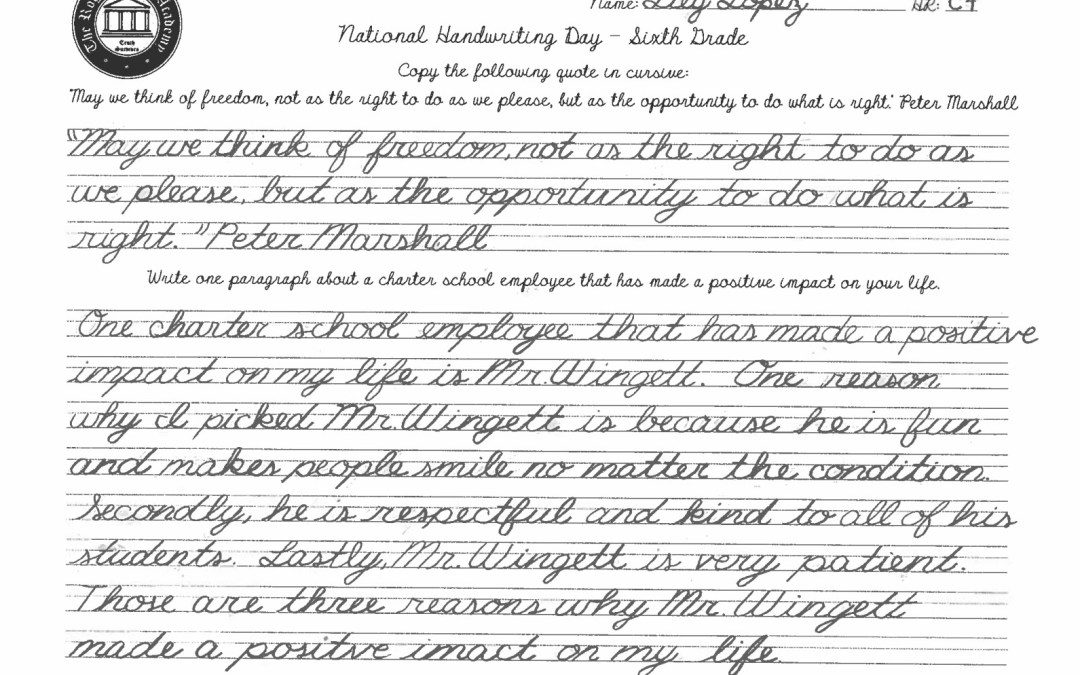 The Ro Academy
South
Name: Lily Lopez HR: C4
National Handwriting Day - Sixth Grade
Copy the following quote in cursive:
"May we think of freedom, not as the right to do as we please, but as the opportunity to do what is right." Peter Marshall
"May we think of freedom, not as the right to do as
we please, but as the opportunity to do what is
right." Peter Marshall
Write one paragraph about a charter school employee that has made a positive impact on your life.
One charter school employee that has made a positive
impact on my life is Mr. Wingett. One reason
why I picked Mr. Wingett is because he is fun
and makes people smile no matter the condition.
Secondly, he is respectful and kind to all of his
students. Lastly, Mr. Wingett is very patient.
Those are three reasons why Mr. Wingett
made a positve imact on my life.